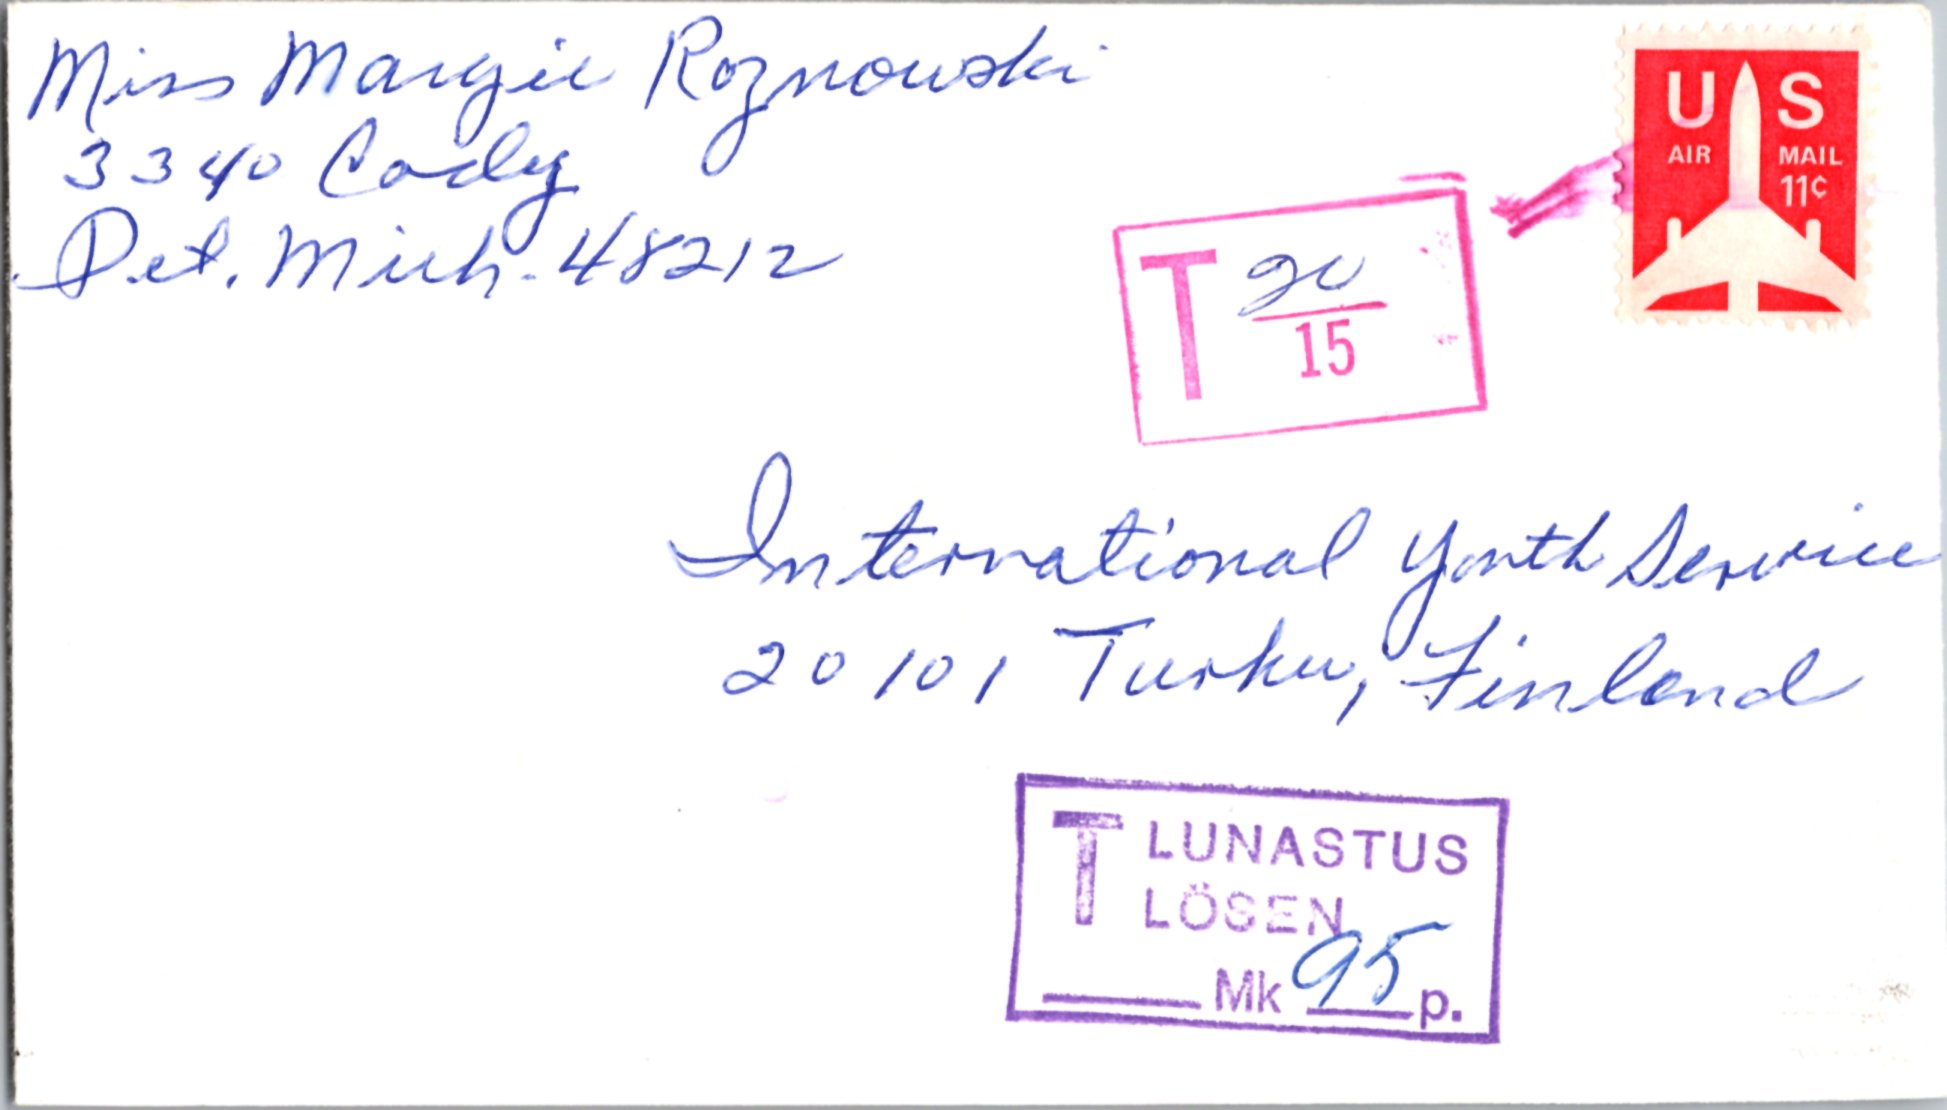 Miss Margie Roznowski
3340 Cody
Det. Mich. 48212
U S
AIR MAIL
11¢
T 20
15
International Youth Service
20101 Turku, Finland
T LUNASTUS
LÖSEN
Mk 95 p.